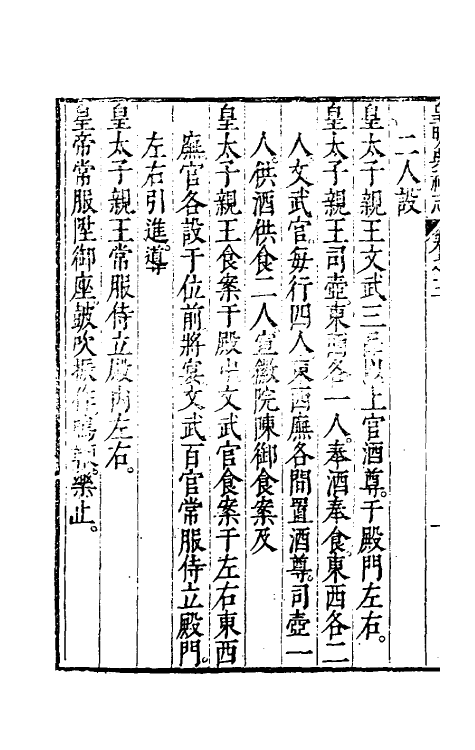 皇明典禮志 卷之二
二人設
皇太子親王文武三品以上官酒尊于殿門左右。
皇太子親王司壺東西各一人。奉酒奉食。東西各二
人。文武官每行四人東西廡各間置酒尊。司壺一
人。供酒供食二人宣徽院陳御食案及
皇太子親王食案于殿中文武官食案于左右東西
廡官各設于位前將宴文武百官常服侍立殿門。
左右引進導
皇太子親王常服侍立殿內左右。
皇帝常服陞御座鼓吹振作鳴鞭。樂止。